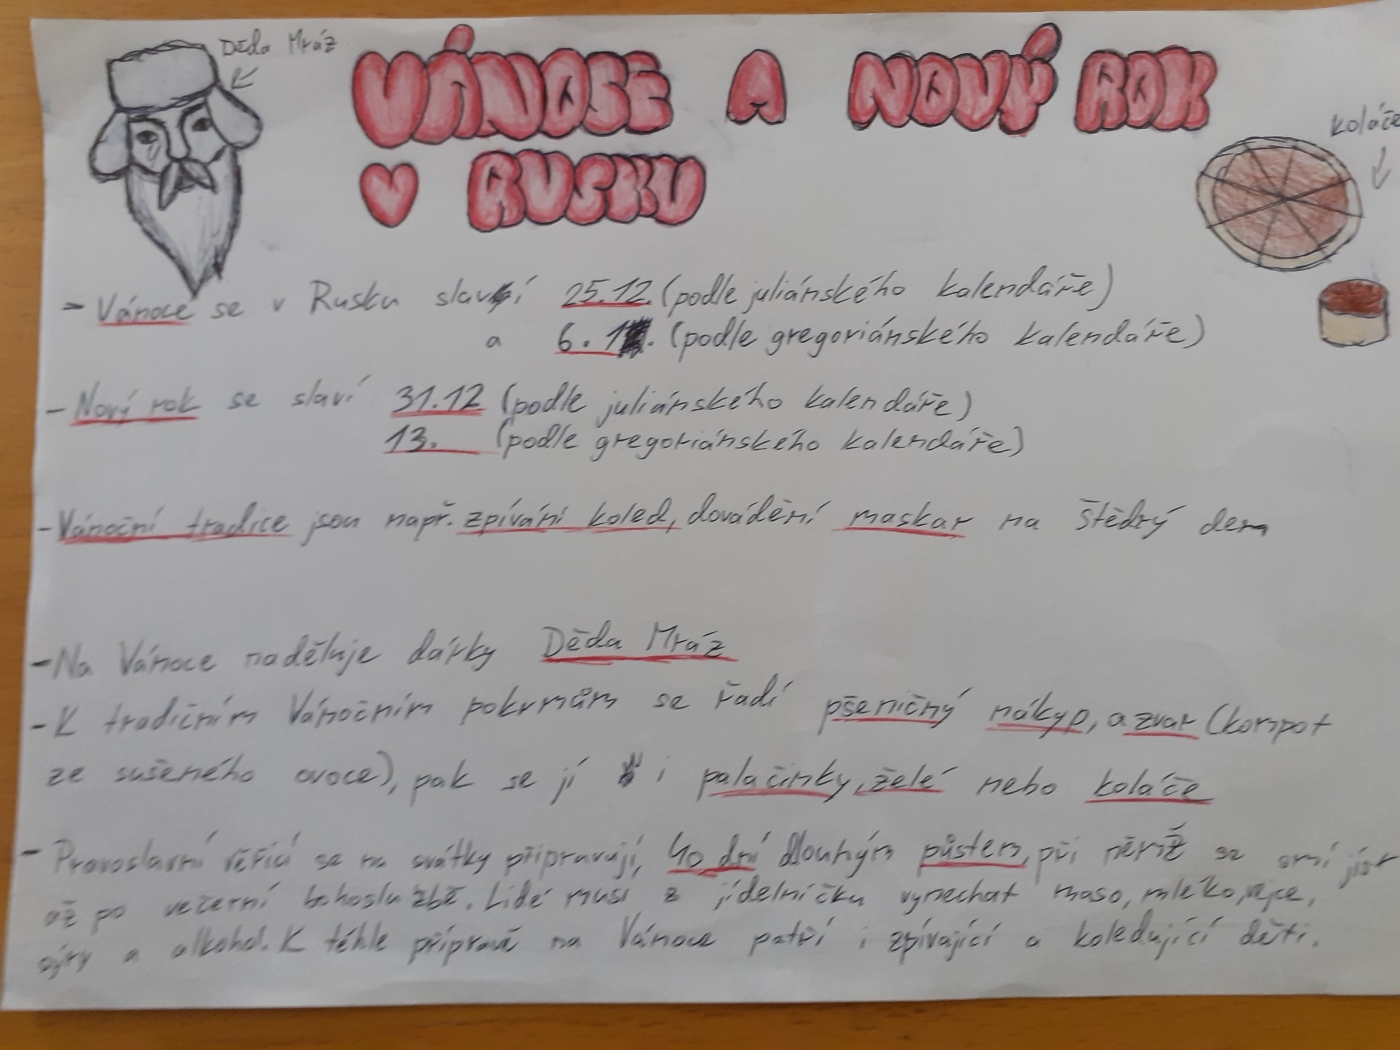 Děda Mráz
VÁNOCE A NOVÝ ROK
V RUSKU
koláče
- Vánoce se v Rusku slaví 25.12. (podle juliánského kalendáře)
a 6.1. (podle gregoriánského kalendáře)
- Nový rok se slaví 31.12 (podle juliánského kalendáře)
13. (podle gregoriánského kalendáře)
- Vánoční tradice jsou např. zpívání koled, dovádění maskar na štědrý den
- Na Vánoce naděluje dárky Děda Mráz
- K tradičním Vánočním pokrmům se řadí pšeničný nákyp, a zvar (kompot
ze sušeného ovoce), pak se jí i palačinky, želé nebo koláče
- Pravoslavní věřící se na svátky připravují, 40 dní dlouhým půstem, při němž se smí jíst
až po večerní bohoslužbě. Lidé musí z jídelníčku vynechat maso, mléko, vejce,
sýry a alkohol. K téhle přípravě na Vánoce patří i zpívající a koledující děti.